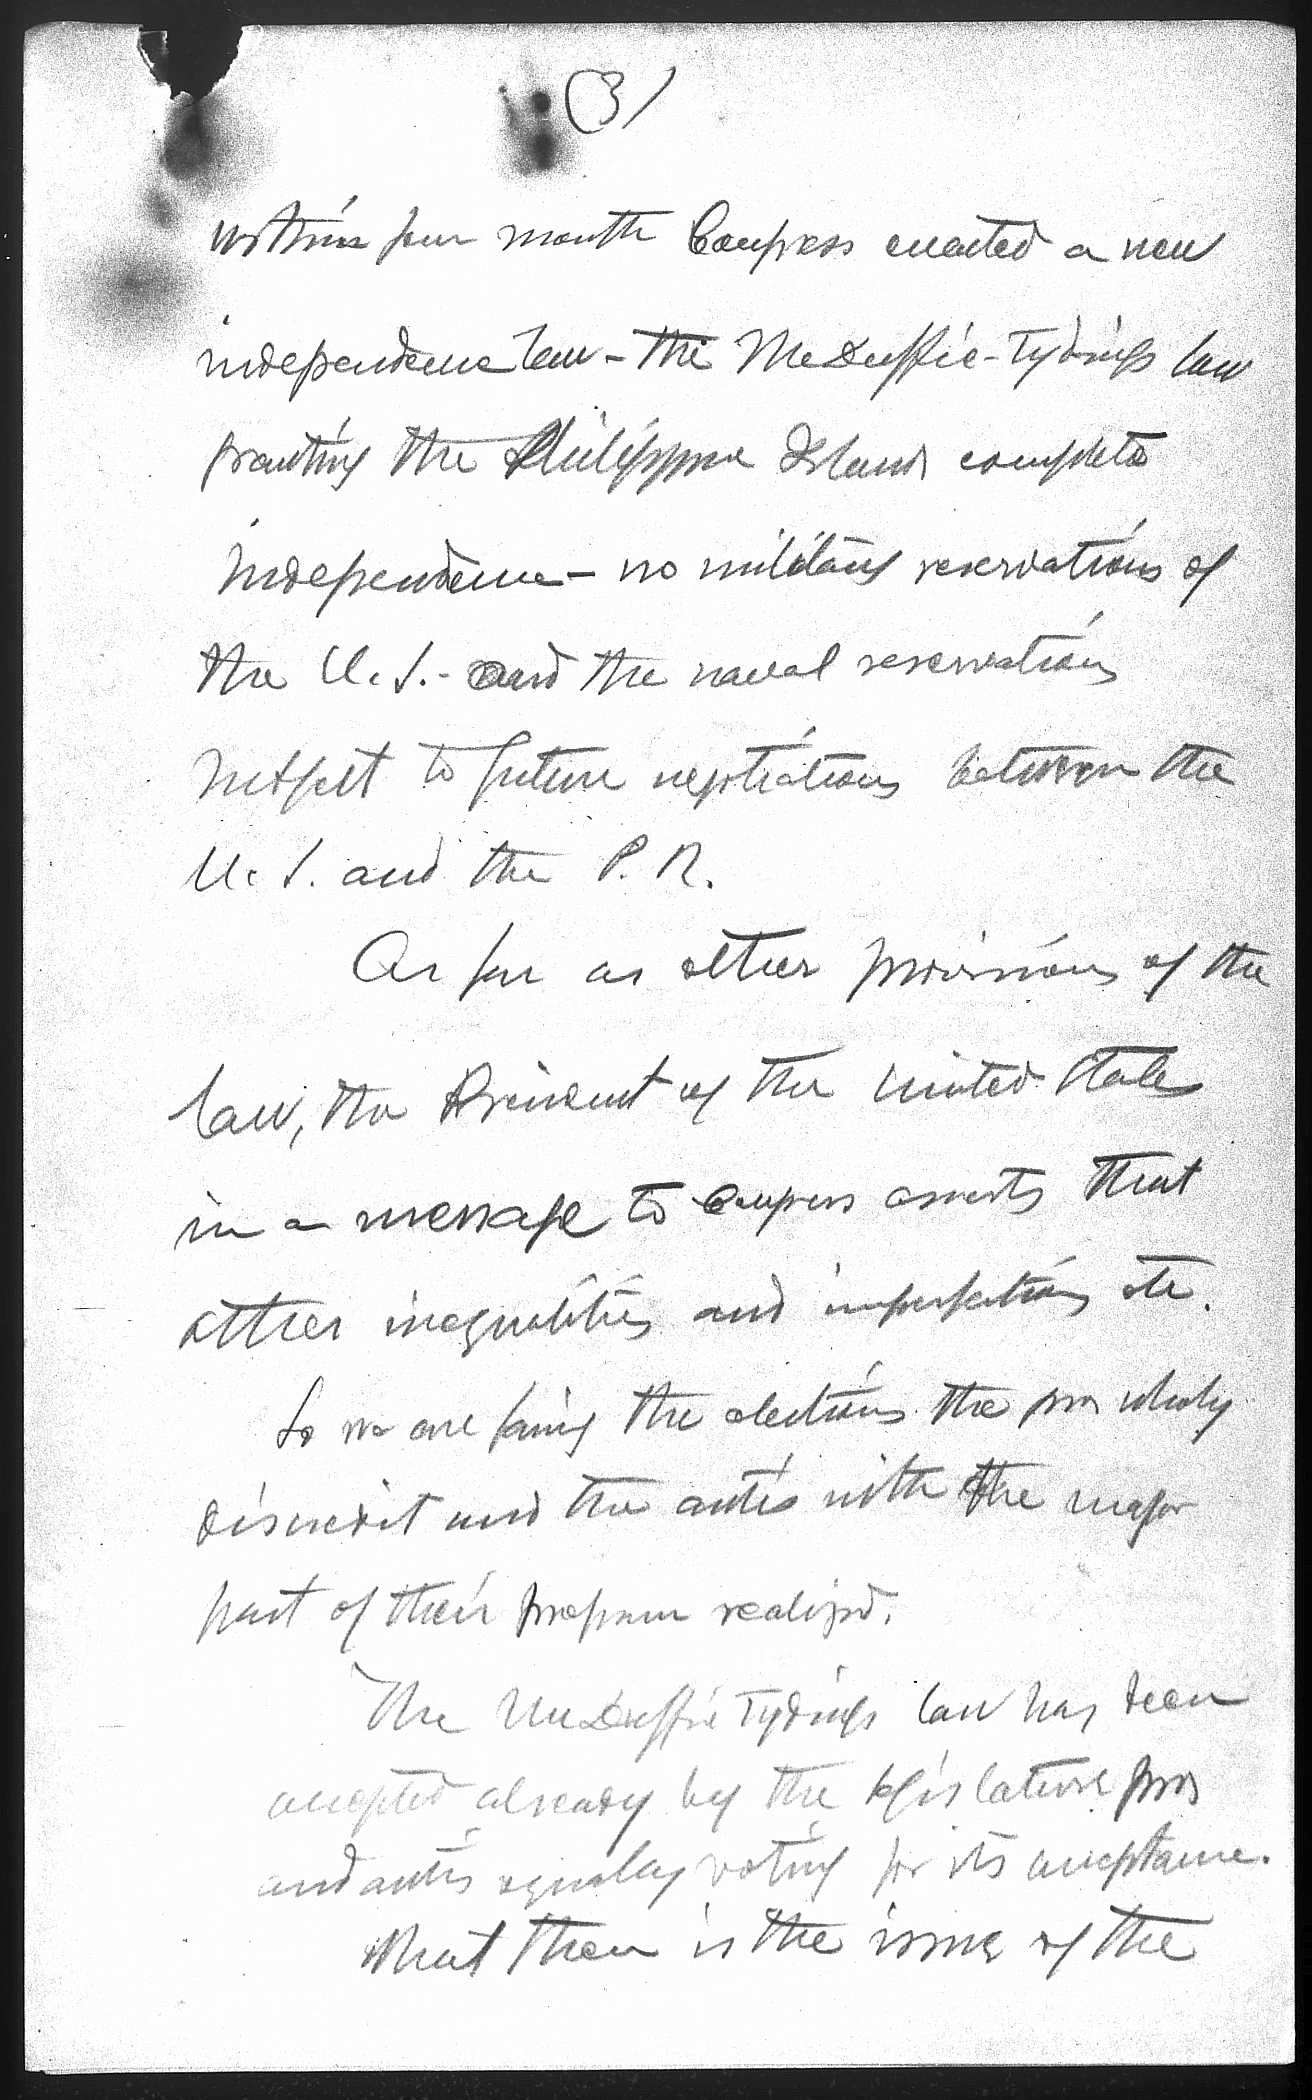 (3)
within four month Congress enacted a new
independence law - the McDuffie-Tydings law
granting the Philippine Islands complete
independence - no military reservations of
the U.S. - and the naval reservations
subject to future negotiations between the
U.S. and the P.I.
As far as other provisions of the
law, the President of the United States
in a message to Congress asserts that
other inequalities and imperfections etc.
So we are facing the elections the pros wholy
discredit and the antis with the major
part of their program realized.
The McDuffie Tydings law has been
accepted already by the legislature pros
and antis equally voting for its acceptance.
What then is the issue of the